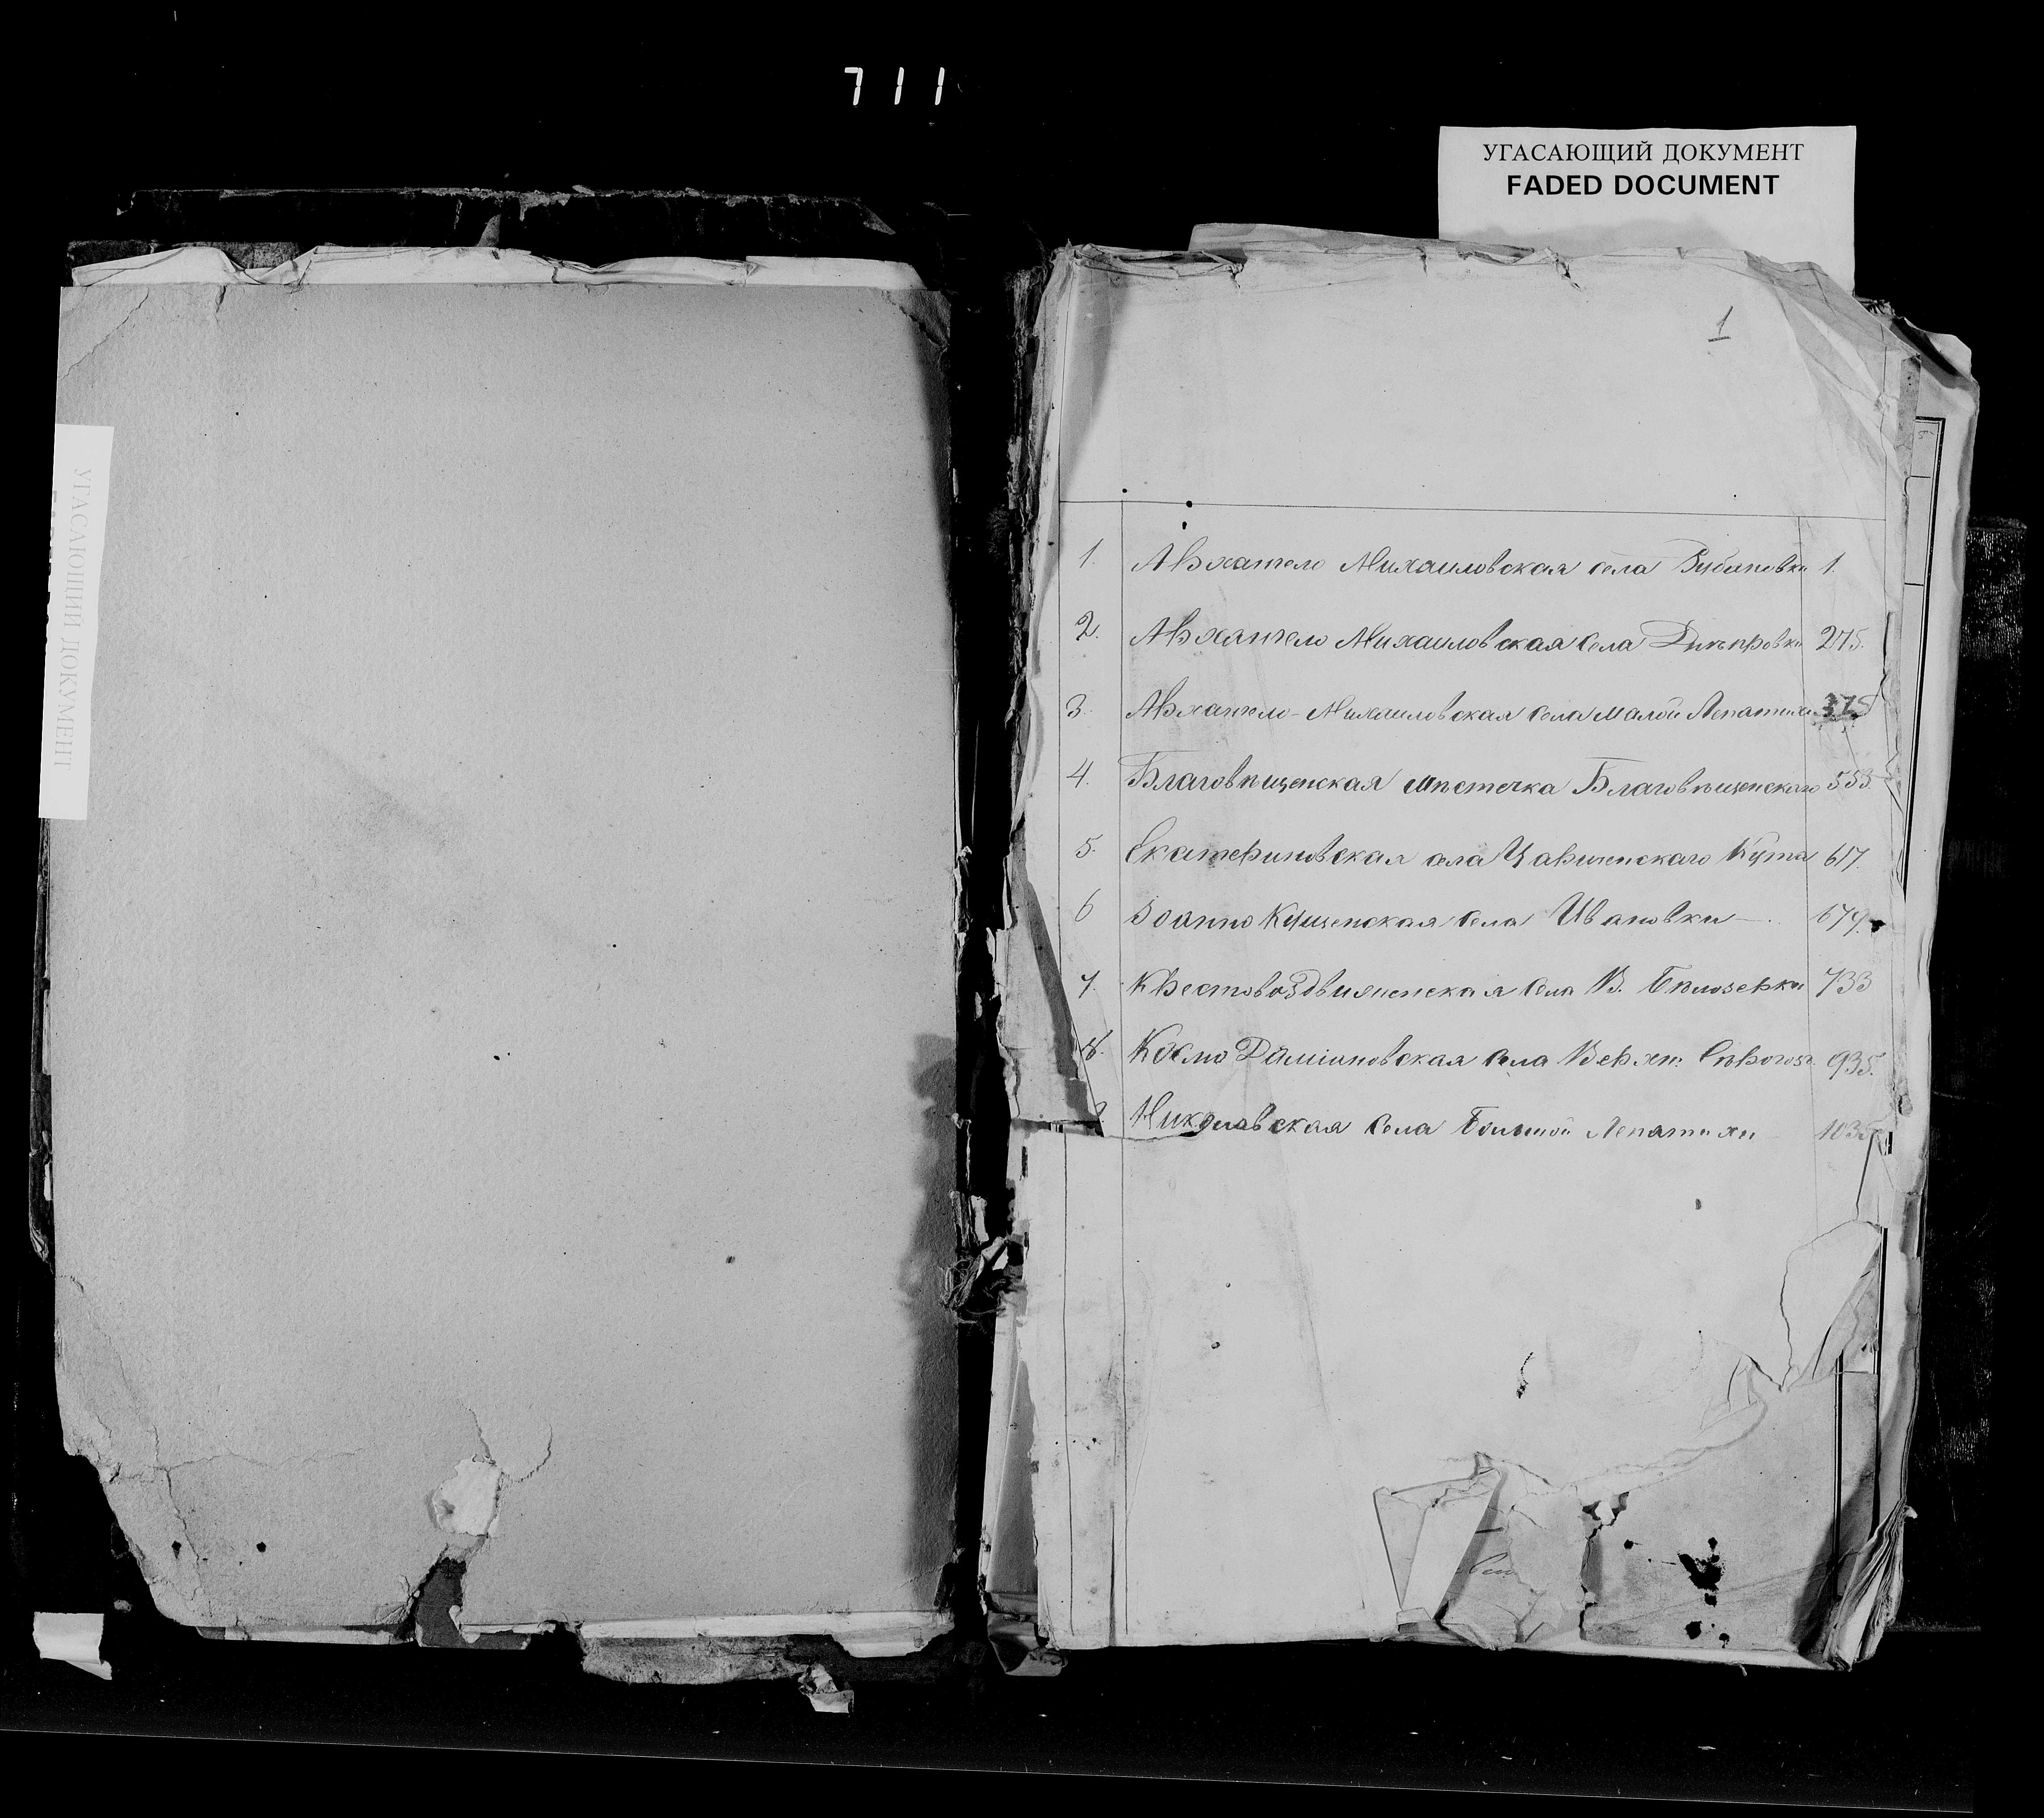 711
УГАСАЮЩИЙ ДОКУМЕНТ
FADED DOCUMENT
УГАСАЮЩИЙ ДОКУМЕНТ
1
1. Архангело Михаиловская села 1.
2. Архангело Михаиловская села Днѣпровки 275.
3. Архангело-Михаиловская села малой Лепатихи 375
4. Благовѣщенская мѣстечка Благовѣщенскаго 553.
5. Екатериновская села Царшенскаго Кута 617.
6 Іоанно Кущенская села Ивановки 679.
7. Крестовоздвиженская села В. Бѣлозерки 733
8. Космо Даміановская села Верхн: Сѣрогозъ. 935.
Николавская села Большой Лепатихи 1035